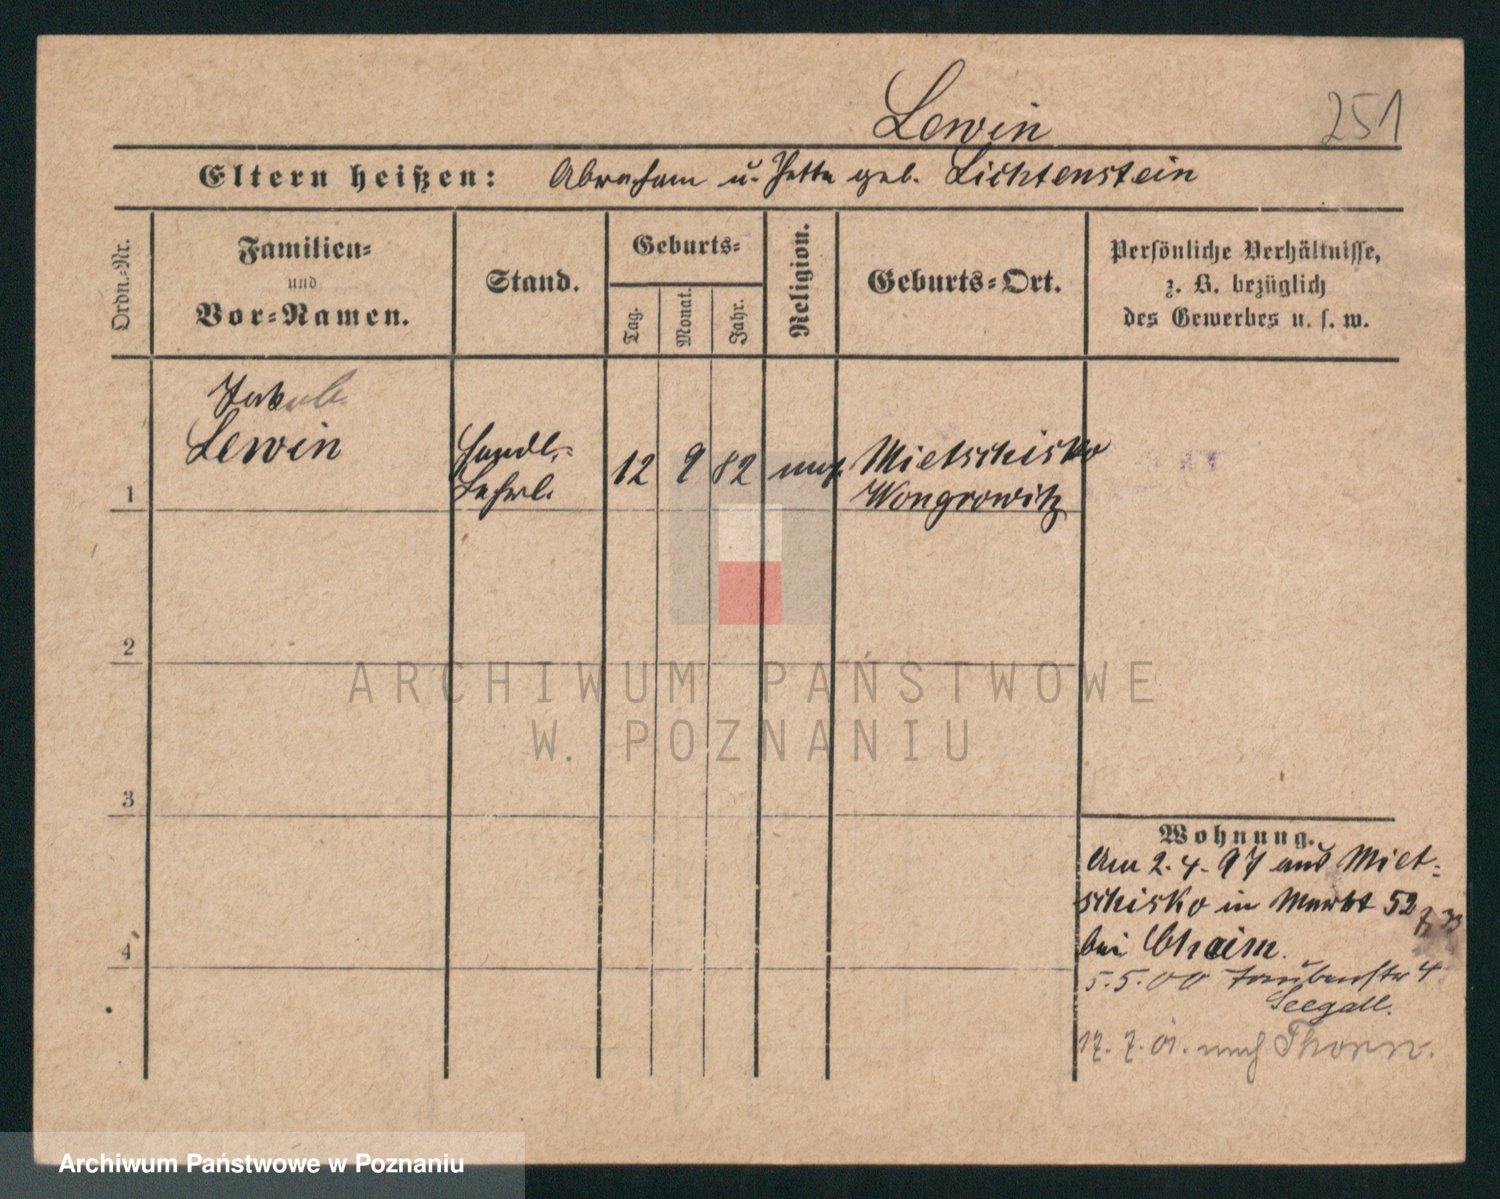 Lewin
251
Eltern heißen: Abraham u. Jette geb. Lichtenstein
Ordn.-Nr.
Familien-
und
Vor-Namen.
Stand.
Geburts-
Tag.
Monat.
Jahr.
Religion.
Geburts-Ort.
Persönliche Verhältnisse,
z. B. bezüglich
des Gewerbes u. s. w.
Jakob
Lewin
Handl.-
Lehrl.
1
12
9
82
mos.
Mietschisko
Wongrowitz
2
ARCHIWUM PAŃSTWOWE
W. POZNANIU
3
Wohnung.
Am 2.4.97 aus Miet-
schisko in Markt 52
bei Chaim.
4
5.5.00 Taubenstr 4
Seegall.
17.7.01. nach Thorn.
Archiwum Państwowe w Poznaniu